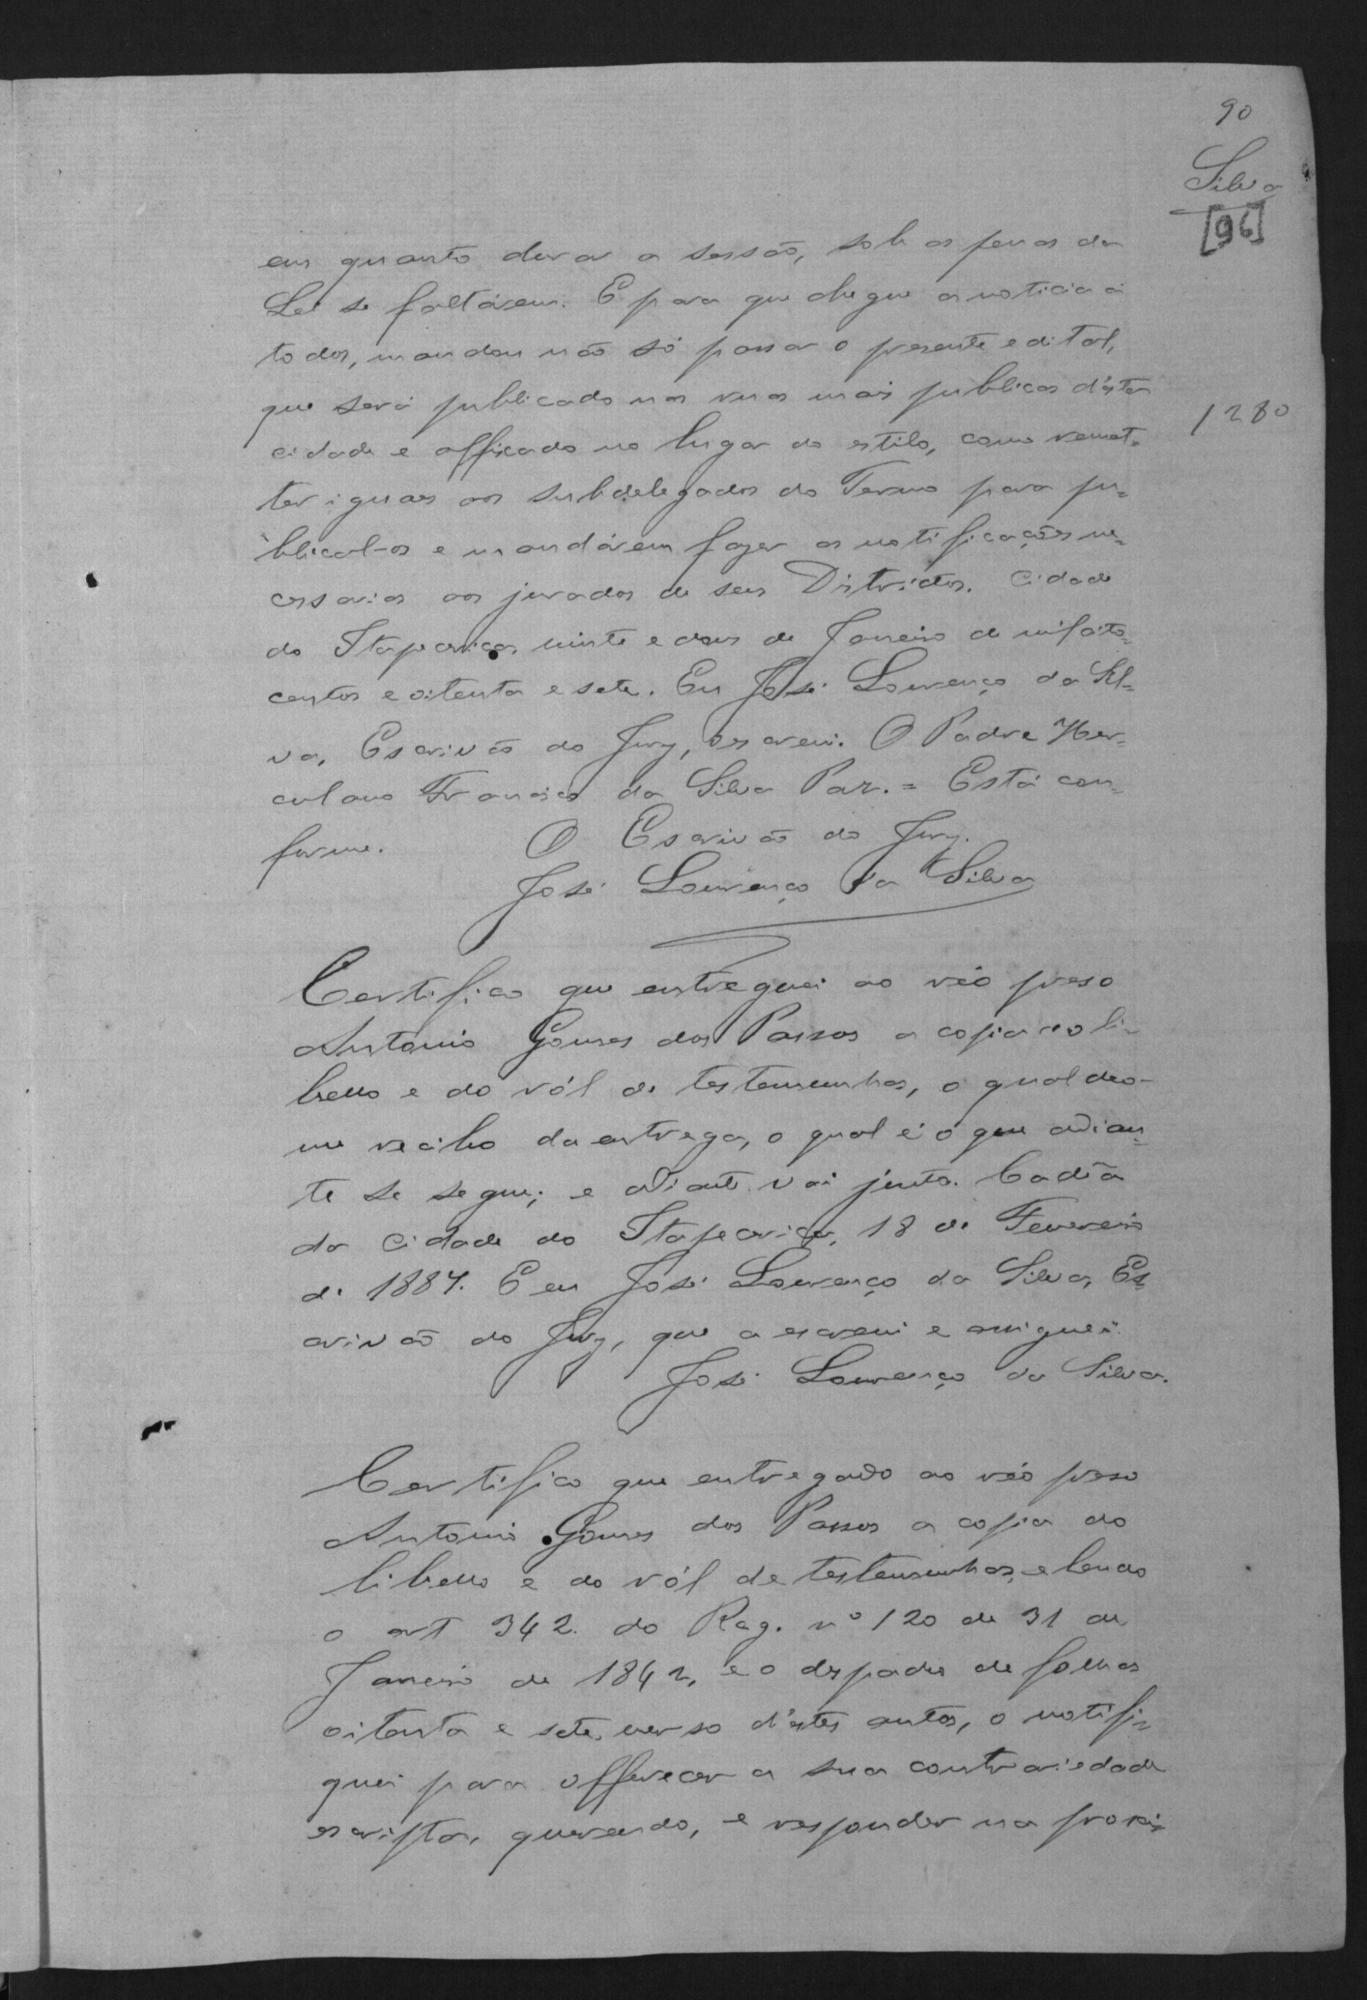 90
Silva
[96]
em quanto durar a sessão, sob as penas da
Lei se faltárem. E para que chegue a noticia a
todos, mandou não só passar o presente edital,
que será publicado nas ruas mais publicas d'ésta
1280
cidade e affixado no lugar do estilo, como remet-
ter iguaes aos subdelegados do Termo para pu=
blical-os e mandárem fazer as notificações ne=
cessarias aos jurados de seus Districtos. Cidade
de Itaparica, vinte e dous de Janeiro de mil oito=
centos e oitenta e sete. Eu José Lourenço da Sil=
va, Escrivão do Jury, o escrevi. O Padre Her=
culano Francisco da Silva Paz. = Está con=
forme. O Escrivão do Jury.
José Lourenço da Silva
Certifico que entreguei ao réo preso
Antonio Gomes dos Passos a copia do li-
bello e do ról de testemunhas, o qual deo-
me recibo da entrega, o qual é o que adian=
te se segue; e adiante vai junto. Cadêa
da Cidade de Itaparica, 18 de Fevereiro
de 1887. E eu José Lourenço da Silva, Es
crivão do Jury, que a escrevi e assignei.
José Lourenço da Silva.
Certifico que entregado ao réo preso
Antonio Gomes dos Passos a copia do
libello e do ról de testemunhas, e lendo
o art 342. do Reg. nº 120 de 31 de
Janeiro de 1842, e o despacho de folhas
oitenta e sete verso d'estes autos, o notifi=
quei para offerecer a sua contrariedade
escripta, querendo, e responder na proxi=